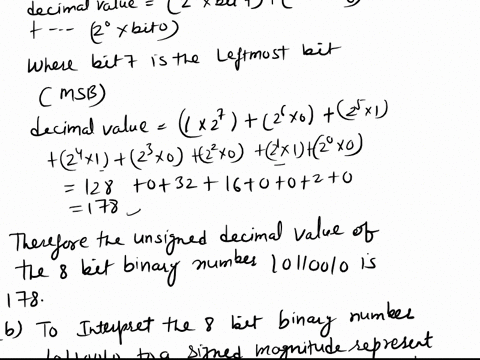 decimal value = (2 × bit 7) + (
+ --- (2⁰ × bit 0)
Where bit 7 is the Leftmost bit
(MSB)
decimal value = (1 × 2⁷) + (2⁶×0) + (2⁵×1)
+(2⁴×1)+(2³×0) +(2²×0) +(2¹×1)+(2⁰×0)
= 128 +0+32 + 16+0+0+2+0
= 178
Therefore the unsigned decimal value of
the 8 bit binary number 10110010 is
178.
b) To Interpret the 8 bit binary number
10110010 to a signed magnitude represent